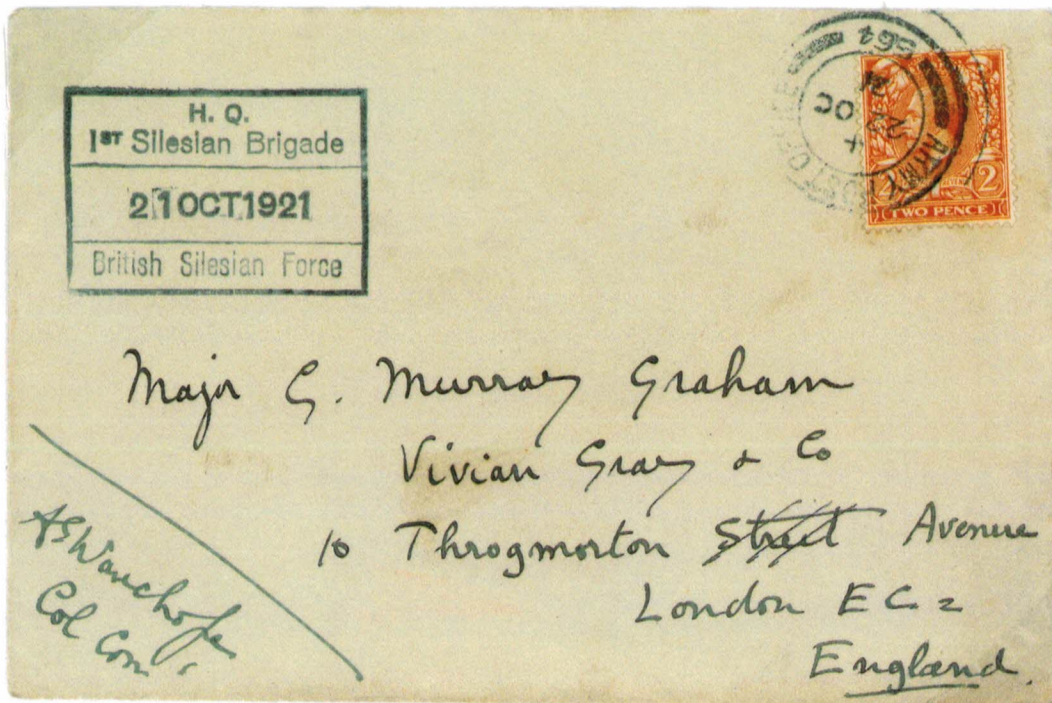 H. Q.
1ST Silesian Brigade
21 OCT 1921
British Silesian Force
ARMY POST OFFICE
TWO PENCE
2
Major G. Murray Graham
Vivian Gray & Co
10 Throgmorton Street Avenue
London EC2
England.
A G Wauchope
Col Com